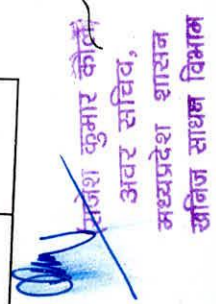 राजेश कुमार कौल
अवर सचिव,
मध्यप्रदेश शासन
खनिज साधन विभाग